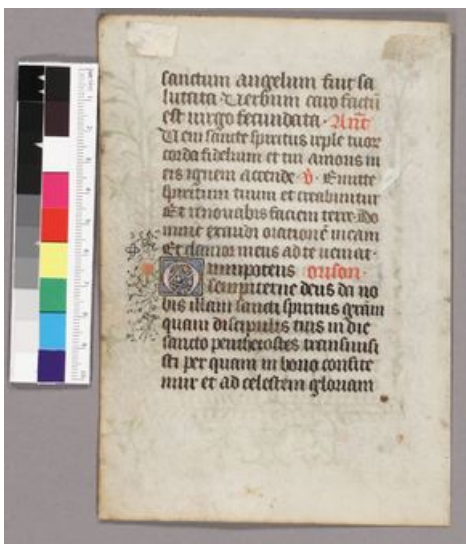 sanctum angelum fuit sa
lutata Verbum caro factū
est virgo fecundata · Añt
Veni sancte spiritus reple tuor
corda fidelium et tui amoris in
eis ignem accende · V̄ · Emitte
spiritum tuum et creabuntur
Et renovabis faciem terre · Do
mine exaudi orationē meam
Et clamor meus ad te veniat ·
Omnipotens orison ·
sempiterne deus da no
bis illam sancti spiritus grām
quam discipulis tuis in die
sancto penthecostes transmisi
sti per quam in bono confite
mur et ad celestem gloriam